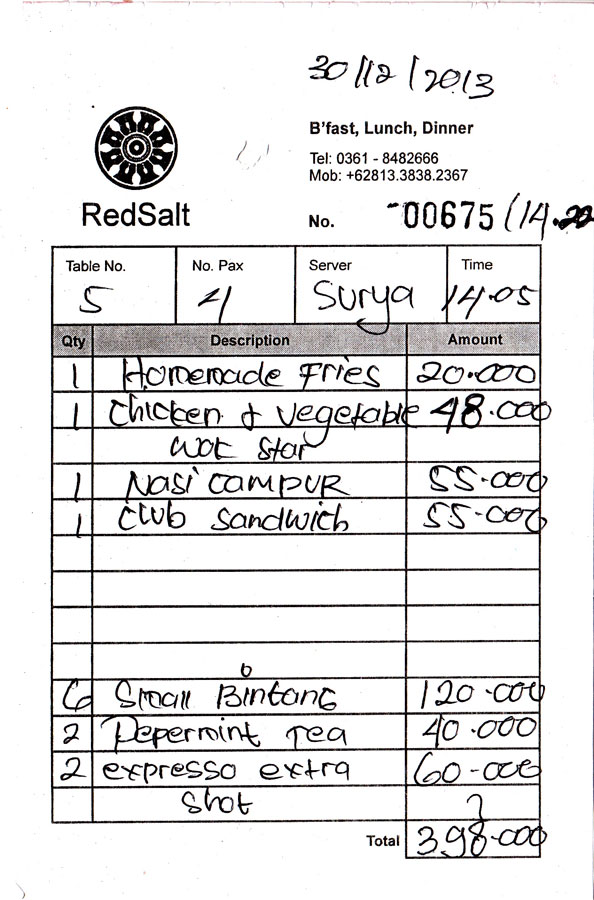 30/12/2013
B'fast, Lunch, Dinner
Tel: 0361 - 8482666
Mob: +62813.3838.2367
RedSalt
No. 00675 / 14.20
Table No. No. Pax Server Time
5 4 Surya 14.05
Qty Description Amount
1 Homemade Fries 20.000
1 Chicken & Vegetable 48.000
wok star
1 Nasi campur 55.000
1 Club Sandwich 55.000
6 Small Bintang 120.000
2 Pepermint Tea 40.000
2 expresso extra 60.000
Shot
Total 398.000